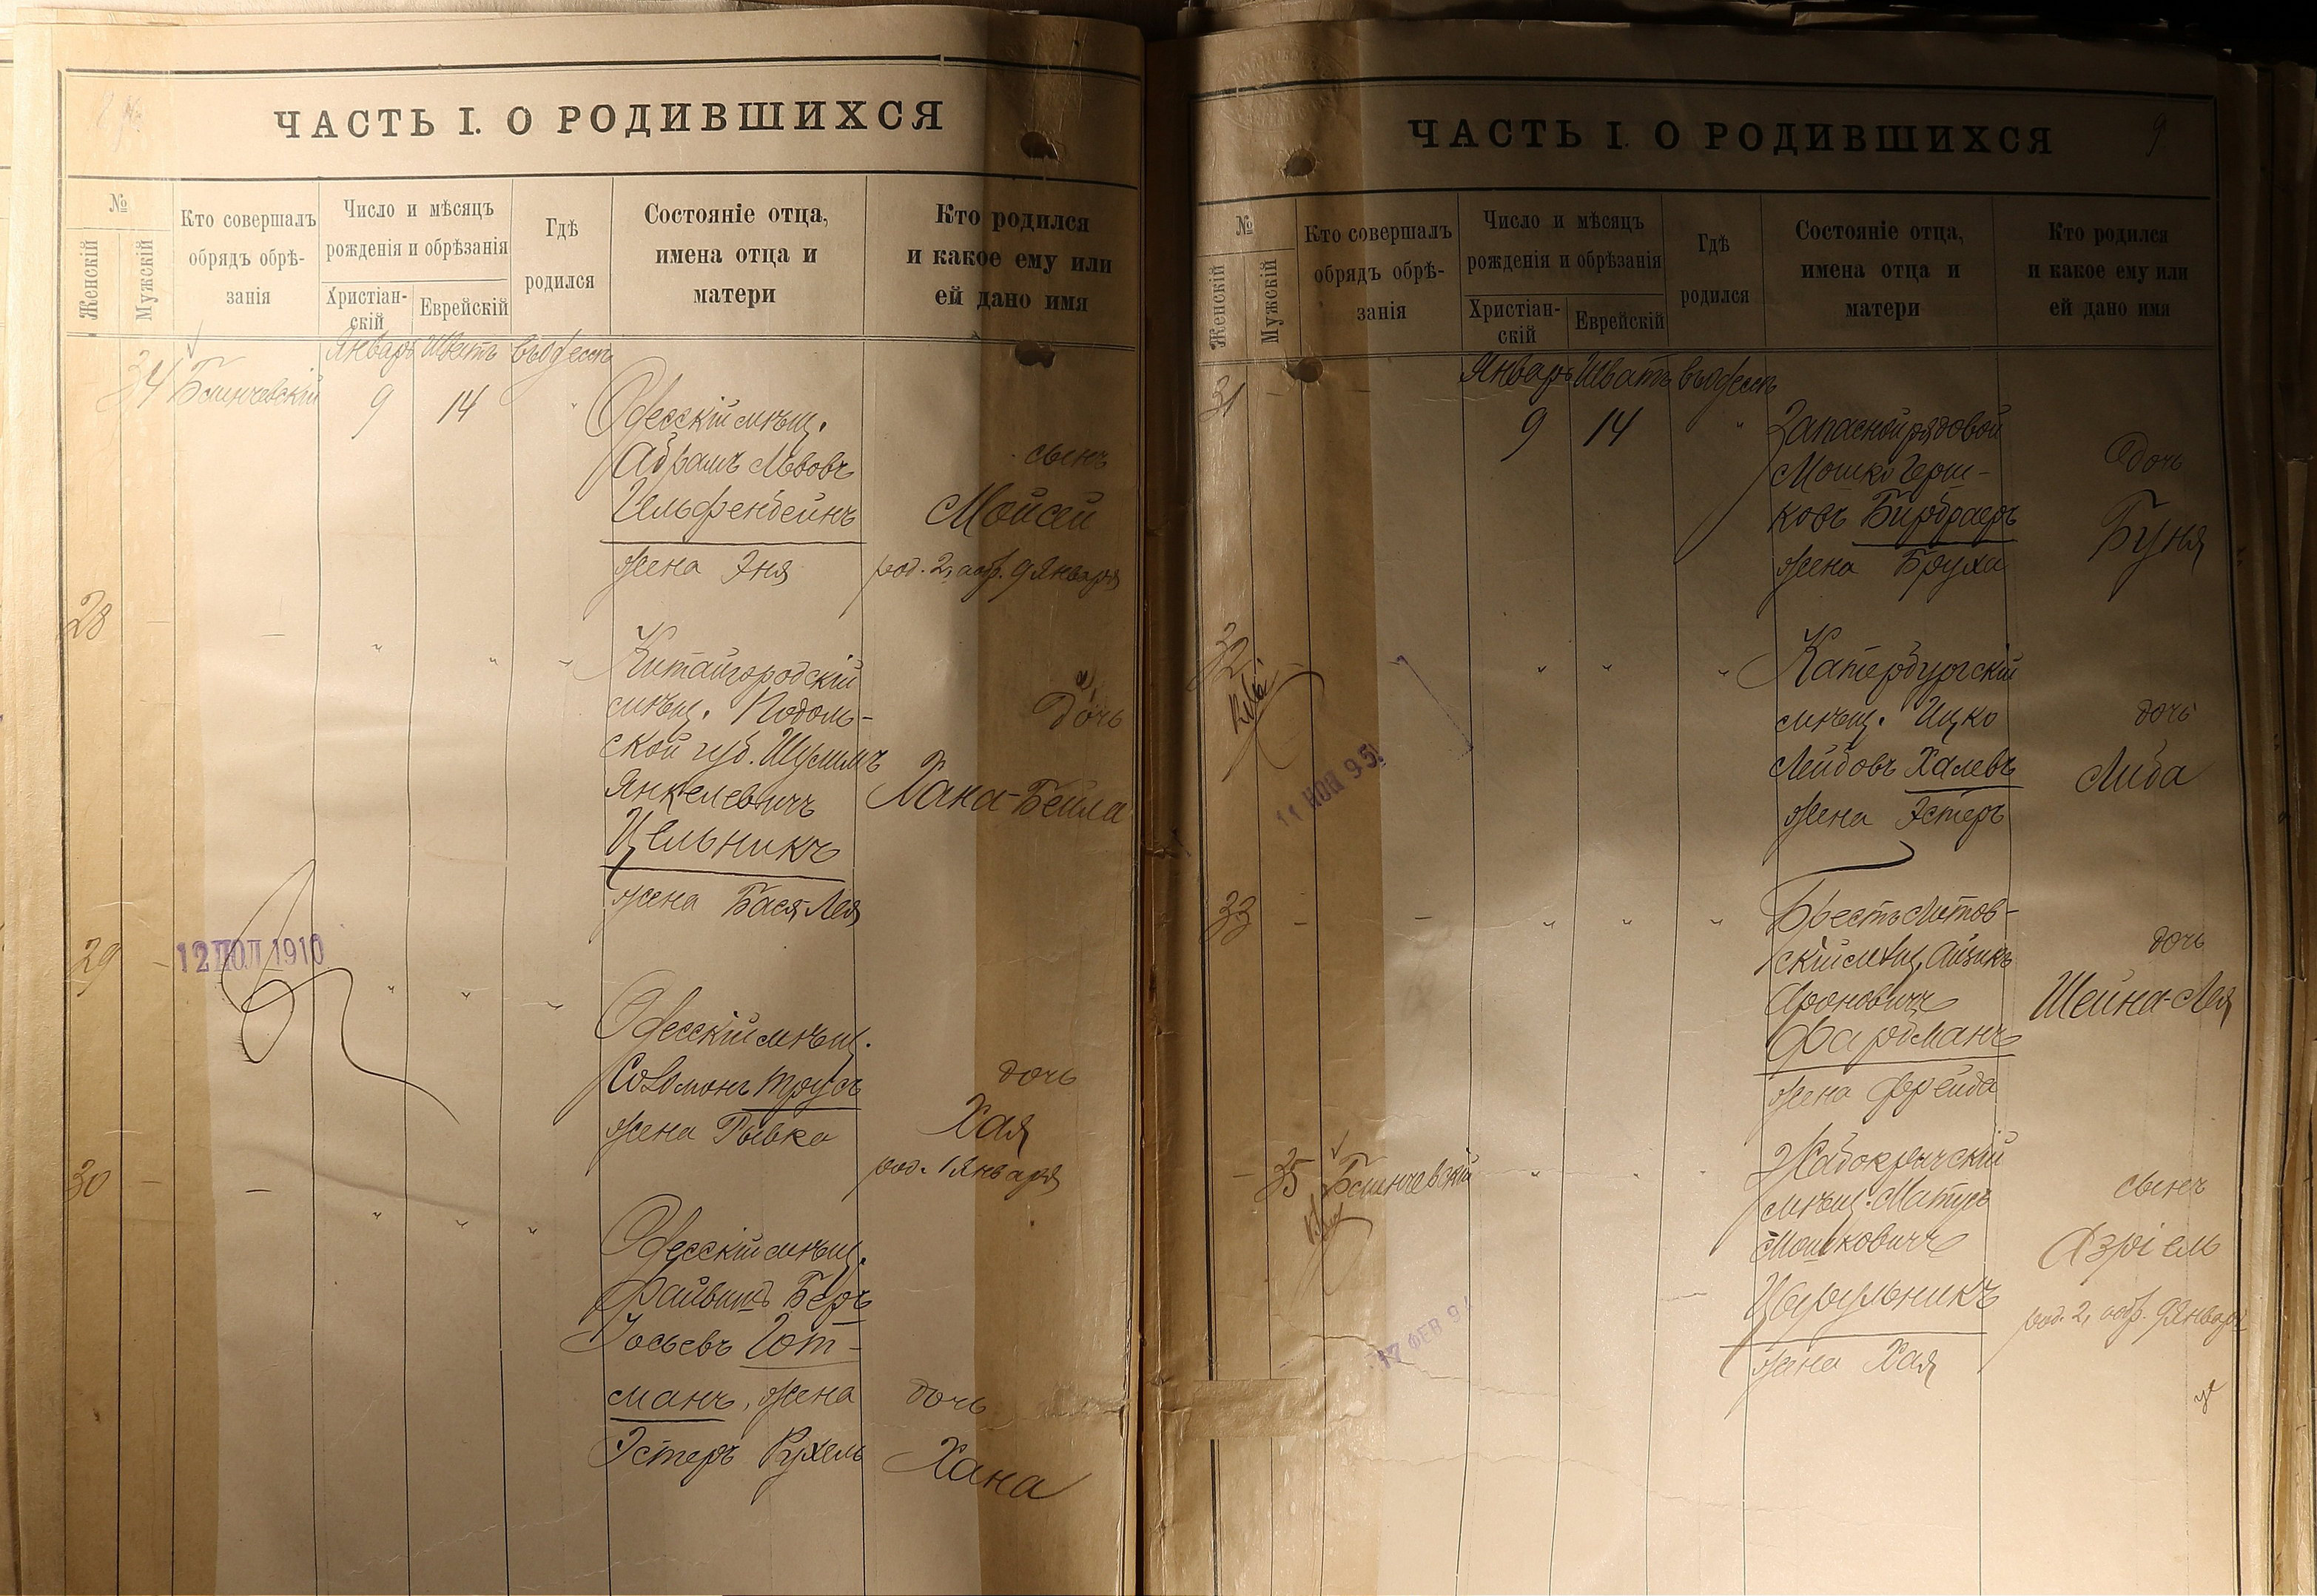 ЧАСТЬ I. О РОДИВШИХСЯ
№
Женскій
Мужскій
Кто совершалъ
обрядъ обрѣ-
занія
Число и мѣсяцъ
рожденія и обрѣзанія
Христіан-
скій
Еврейскій
Гдѣ
родился
Состояніе отца,
имена отца и
матери
Кто родился
и какое ему или
ей дано имя
Январь Шватъ въ Одессѣ
34
9 14 "
Одесскій мѣщ.
Абрамъ Львовъ
Гельфенбейнъ
жена Эня
сынъ
Мойсей
род. 2, обр. 9 Января
28 — — " " "
Китайгородскій
мѣщ. Подоль-
ской губ. Шулимъ
Янкелевичъ
Цельникъ
жена Бася Лея
дочь
Хана-Бейла
29 — 12 ІЮЛ 1910 " " "
Одесскій мѣщ.
Соломонъ Трусъ
жена Рывка
дочь
Хая
род. 1 Января
30 — — " " "
Одесскій мѣщ.
Файвишъ Беръ
Іосьевъ Гот-
манъ, жена
Эстеръ Рухель
дочь
Хана
ЧАСТЬ I. О РОДИВШИХСЯ
9
№
Женскій
Мужскій
Кто совершалъ
обрядъ обрѣ-
занія
Число и мѣсяцъ
рожденія и обрѣзанія
Христіан-
скій
Еврейскій
Гдѣ
родился
Состояніе отца,
имена отца и
матери
Кто родился
и какое ему или
ей дано имя
Январь Шватъ въ Одессѣ
31 —
9 14 "
Запасной рядовой
Мошко Герш-
ковъ Бирбраеръ
жена Бруха
дочь
Буня
32 — " " "
11 НОЯ 95
Катербургскій
мѣщ. Ицко
Лейбовъ Халевъ
жена Эстеръ
дочь
Либа
33 — — " " "
Брестъ Литов-
скій мѣщ. Айзикъ
Ароновичъ
Фарбманъ
жена Фрейда
дочь
Шейна-Лея
— 35 " " "
17 ФЕВ 9
Жабокричскій
мѣщ. Матусъ
Мошковичъ
Цырульникъ
жена Хая
сынъ
Азріель
род. 2, обр. 9 Января